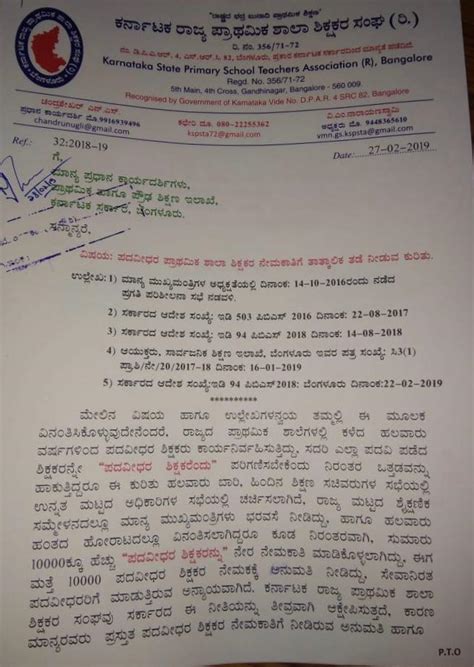 "ರಾಷ್ಟ್ರದ ಭದ್ರ ಬುನಾದಿ ಪ್ರಾಥಮಿಕ ಶಿಕ್ಷಣ"
ಕರ್ನಾಟಕ ರಾಜ್ಯ ಪ್ರಾಥಮಿಕ ಶಾಲಾ ಶಿಕ್ಷಕರ ಸಂಘ (ರಿ.)
ರಿ. ನಂ. 356/71-72
ನಂ. ಡಿ.ಪಿ.ಎ.ಆರ್. 4, ಎಸ್.ಆರ್.ಸಿ. 82, ಬೆಂಗಳೂರು, ಕರ್ನಾಟಕ ಸರ್ಕಾರದಿಂದ ಮಾನ್ಯತೆ ಪಡೆದಿದೆ.
Karnataka State Primary School Teachers Association (R), Bangalore
Regd. No. 356/71-72
5th Main, 4th Cross, Gandhinagar, Bangalore - 560 009.
Recognised by Government of Karnataka Vide No. D.P.A.R. 4 SRC 82, Bangalore
ಚಂದ್ರಶೇಖರ್ ಎನ್.ಎಸ್.
ಪ್ರಧಾನ ಕಾರ್ಯದರ್ಶಿ ಮೊ.9916939496
chandrunugli@gmail.com
ಕಛೇರಿ ದೂ. 080-22255362
kspsta72@gmail.com
ವಿ.ಎಂ.ನಾರಾಯಣಸ್ವಾಮಿ
ಅಧ್ಯಕ್ಷರು ಮೊ. 9448365610
vmn.gs.kspsta@gmail.com
Ref.: 32:2018-19
Date: 27-02-2019
ಗೆ,
ಮಾನ್ಯ ಪ್ರಧಾನ ಕಾರ್ಯದರ್ಶಿಗಳು,
ಪ್ರಾಥಮಿಕ ಹಾಗೂ ಪ್ರೌಢ ಶಿಕ್ಷಣ ಇಲಾಖೆ,
ಕರ್ನಾಟಕ ಸರ್ಕಾರ, ಬೆಂಗಳೂರು.
ಸನ್ಮಾನ್ಯರೆ,
ವಿಷಯ: ಪದವೀಧರ ಪ್ರಾಥಮಿಕ ಶಾಲಾ ಶಿಕ್ಷಕರ ನೇಮಕಾತಿಗೆ ತಾತ್ಕಾಲಿಕ ತಡೆ ನೀಡುವ ಕುರಿತು.
ಉಲ್ಲೇಖ: 1) ಮಾನ್ಯ ಮುಖ್ಯಮಂತ್ರಿಗಳ ಅಧ್ಯಕ್ಷತೆಯಲ್ಲಿ ದಿನಾಂಕ: 14-10-2016ರಂದು ನಡೆದ
ಪ್ರಗತಿ ಪರಿಶೀಲನಾ ಸಭೆ ನಡವಳಿ.
2) ಸರ್ಕಾರದ ಆದೇಶ ಸಂಖ್ಯೆ: ಇಡಿ 503 ಪಿಬಿಎಸ್ 2016 ದಿನಾಂಕ: 22-08-2017
3) ಸರ್ಕಾರದ ಆದೇಶ ಸಂಖ್ಯೆ: ಇಡಿ 94 ಪಿಬಿಎಸ್ 2018 ದಿನಾಂಕ: 14-08-2018
4) ಆಯುಕ್ತರು, ಸಾರ್ವಜನಿಕ ಶಿಕ್ಷಣ ಇಲಾಖೆ, ಬೆಂಗಳೂರು ಇವರ ಪತ್ರ ಸಂಖ್ಯೆ: ಸಿ3(1)
ಪ್ರಾ.ಶಿ/ನೇ/20/2017-18 ದಿನಾಂಕ: 16-01-2019
5) ಸರ್ಕಾರದ ಆದೇಶ ಸಂಖ್ಯೆ:ಇಡಿ 94 ಪಿಬಿಎಸ್2018: ಬೆಂಗಳೂರು ದಿನಾಂಕ:22-02-2019
**********
ಮೇಲಿನ ವಿಷಯ ಹಾಗೂ ಉಲ್ಲೇಖಗಳನ್ವಯ ತಮ್ಮಲ್ಲಿ ಈ ಮೂಲಕ
ವಿನಂತಿಸಿಕೊಳ್ಳುವುದೇನೆಂದರೆ, ರಾಜ್ಯದ ಪ್ರಾಥಮಿಕ ಶಾಲೆಗಳಲ್ಲಿ ಕಳೆದ ಹಲವಾರು
ವರ್ಷಗಳಿಂದ ಪದವೀಧರ ಶಿಕ್ಷಕರು ಕಾರ್ಯನಿರ್ವಹಿಸುತ್ತಿದ್ದು, ಸದರಿ ಎಲ್ಲಾ ಪದವಿ ಪಡೆದ
ಶಿಕ್ಷಕರನ್ನೇ "ಪದವೀಧರ ಶಿಕ್ಷಕರೆಂದು" ಪರಿಗಣಿಸಬೇಕೆಂದು ನಿರಂತರ ಒತ್ತಡವನ್ನು
ಹಾಕುತ್ತಿದ್ದರೂ ಈ ಕುರಿತು ಹಲವಾರು ಬಾರಿ, ಹಿಂದಿನ ಶಿಕ್ಷಣ ಸಚಿವರುಗಳ ಸಭೆಯಲ್ಲಿ
ಉನ್ನತ ಮಟ್ಟದ ಅಧಿಕಾರಿಗಳ ಸಭೆಯಲ್ಲಿ ಚರ್ಚಿಸಲಾಗಿದೆ, ರಾಜ್ಯ ಮಟ್ಟದ ಶೈಕ್ಷಣಿಕ
ಸಮ್ಮೇಳನದಲ್ಲೂ ಮಾನ್ಯ ಮುಖ್ಯಮಂತ್ರಿಗಳು ಭರವಸೆ ನೀಡಿದ್ದು, ಹಾಗೂ ಹಲವಾರು
ಹಂತದ ಹೋರಾಟದಲ್ಲೂ ವಿನಂತಿಸಲಾಗಿದ್ದರೂ ಕೂಡ ನಿರಂತರವಾಗಿ, ಸುಮಾರು
10000ಕ್ಕೂ ಹೆಚ್ಚು "ಪದವೀಧರ ಶಿಕ್ಷಕರನ್ನು" ನೇರ ನೇಮಕಾತಿ ಮಾಡಿಕೊಳ್ಳಲಾಗಿದ್ದು, ಈಗ
ಮತ್ತೆ 10000 ಪದವೀಧರ ಶಿಕ್ಷಕರ ನೇಮಕಕ್ಕೆ ಅನುಮತಿ ನೀಡಿದ್ದು, ಸೇವಾನಿರತ
ಪದವೀಧರರಿಗೆ ಮಾಡುತ್ತಿರುವ ಅನ್ಯಾಯವಾಗಿದೆ. ಕರ್ನಾಟಕ ರಾಜ್ಯ ಪ್ರಾಥಮಿಕ ಶಾಲಾ
ಶಿಕ್ಷಕರ ಸಂಘವು ಸರ್ಕಾರದ ಈ ನೀತಿಯನ್ನು ತೀವ್ರವಾಗಿ ಆಕ್ಷೇಪಿಸುತ್ತದೆ, ಕಾರಣ
ಮಾನ್ಯರವರು ಪ್ರಸ್ತುತ ಪದವೀಧರ ಶಿಕ್ಷಕರ ನೇಮಕಾತಿಗೆ ನೀಡಿರುವ ಅನುಮತಿ ಹಾಗೂ
P.T.O